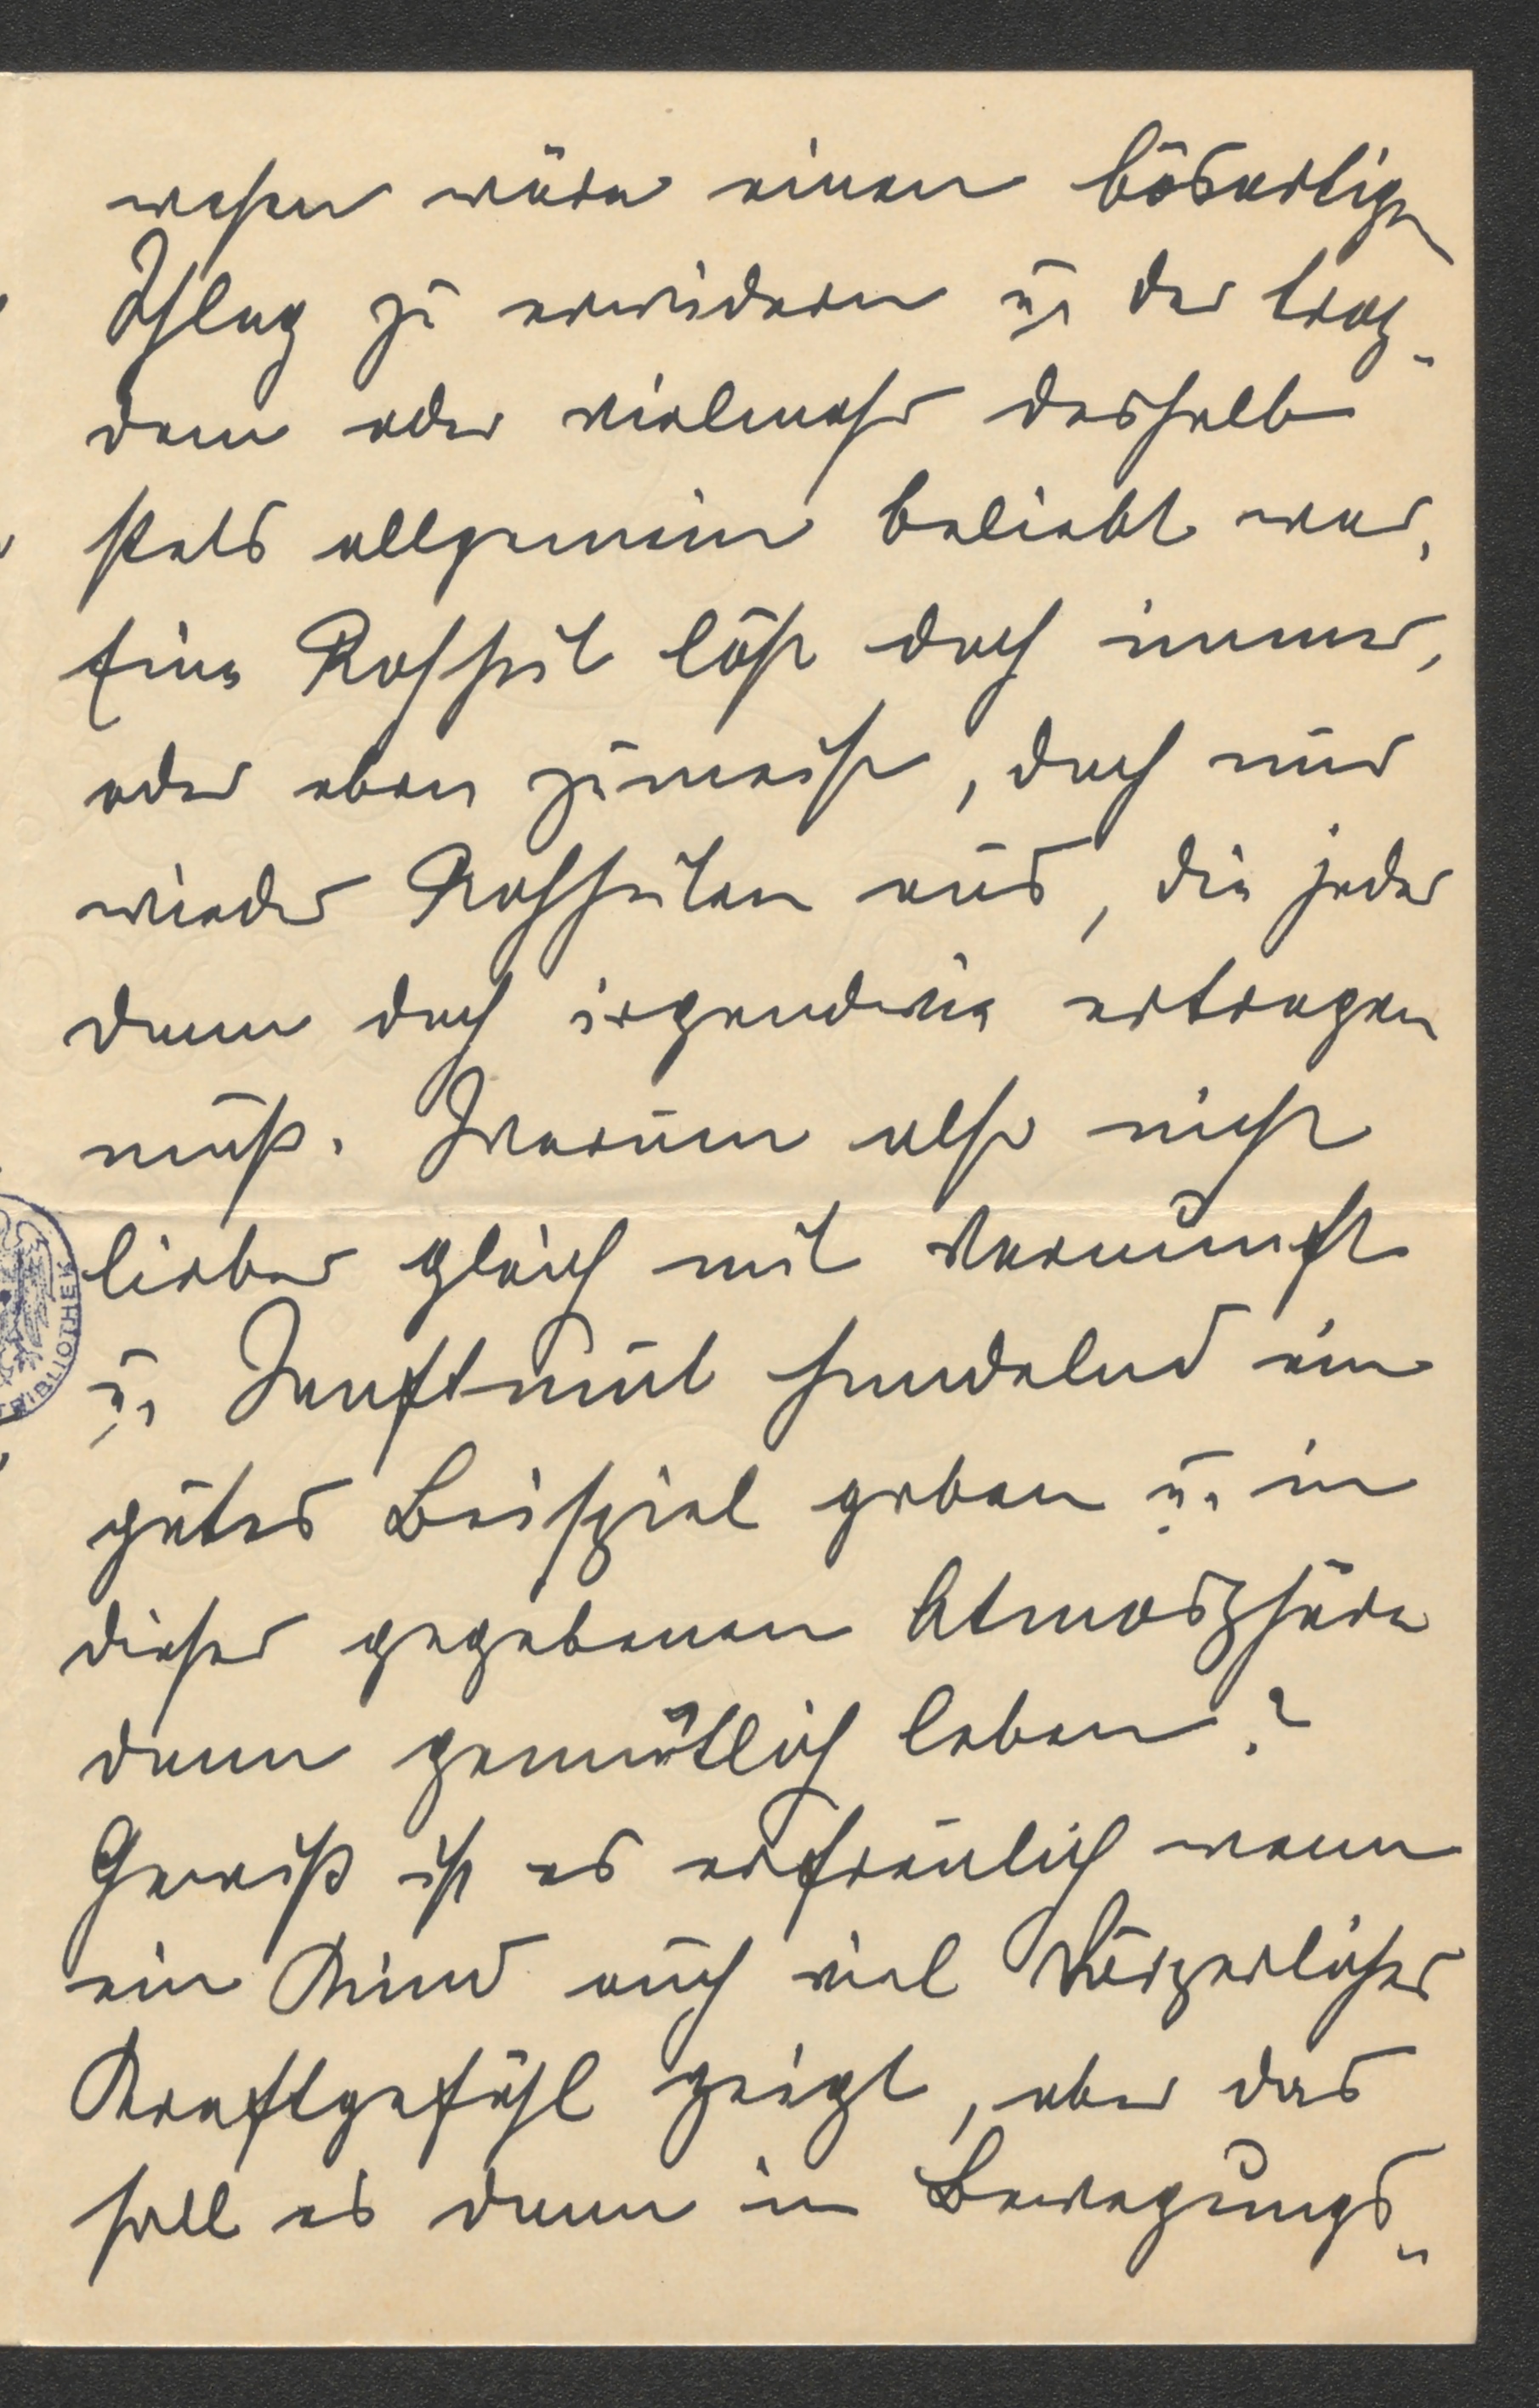 wesen wäre einen bösartigen
Schlag zu erwidern u. der trotz-
dem oder vielmehr deshalb
stets allgemein beliebt war.
Eine Rohheit löst doch immer,
oder eben zumeist, doch nur
wieder Rohheiten aus, die jeder
dann doch irgendwie ertragen
muß. Warum also nicht
lieber gleich mit Vernunft
u. Sanftmut handelnd ein
gutes Beispiel geben u. in
dieser gegebenen Atmosphäre
dann gemütlich leben?
Gewiß ist es erfreulich wenn
ein Kind auch viel körperliches
Kraftgefühl zeigt, aber das
soll es dann in Bewegungs-
BIBLIOTHEK